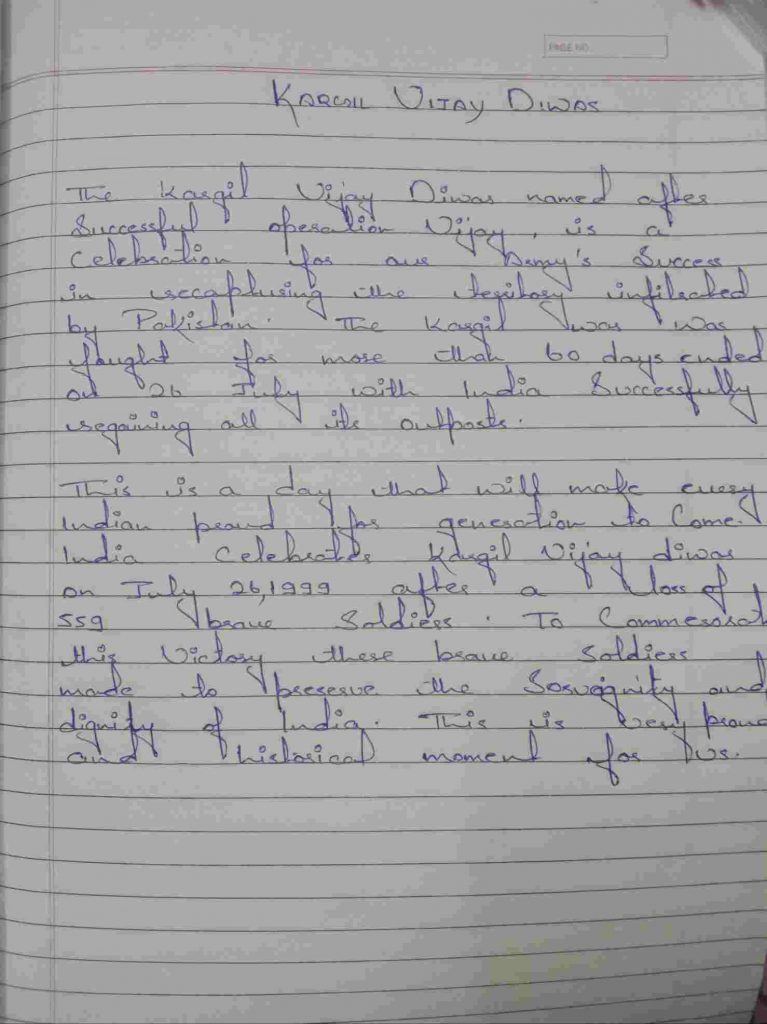 PAGE NO
KARGIL VIJAY DIWAS
The Kargil Vijay Diwas named after
Successful operation Vijay, is a
Celebration for our Army's Success
in recapturing the teritory infilrated
by Pakistan. The Kargil was was
fought for more than 60 days ended
on 26 July with India Successfully
regaining all its outposts.
This is a day that will make every
Indian proud for generation to Come.
India Celebrates Kargil Vijay diwas
on July 26,1999 after a loss of
559 brave Soldiers. To Commemorat
this Victory these brave Soldiers
made to preserve the Soverignity and
dignity of India. This is very proud
and historical moment for Us.